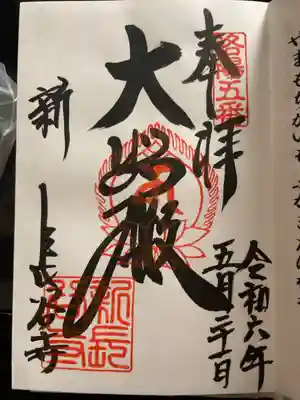 洛陽五番
奉拝
大悲殿
新長谷寺
新長谷寺
令和六年
五月二十一日